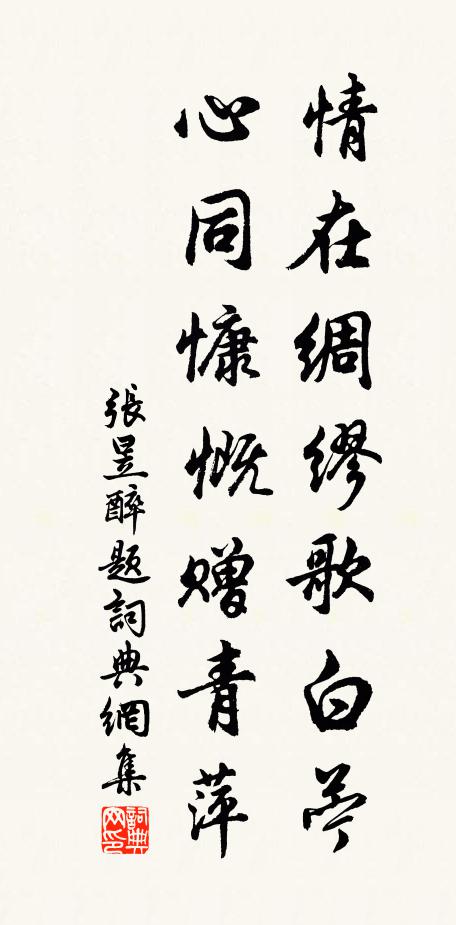 情在綢繆歌白苧
心同慷慨贈青萍
張昱醉題詞典網集
詞典網印